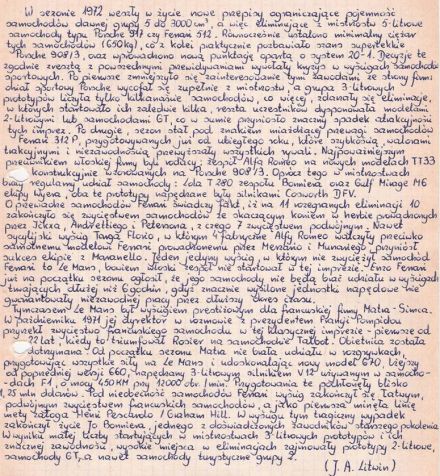 W sezonie 1972 weszły w życie nowe przepisy ograniczające pojemność
samochodów dawnej grupy 5 do 3000 cm³, a więc eliminujące z mistrzostw 5-litrowe
samochody typu Porsche 917 czy Ferrari 512. Równocześnie ustalono minimalny ciężar
tych samochodów (650kg), co z kolei praktycznie pozbawiało szans superlekkie
Porsche 908/3, oraz wprowadzono nową punktację opartą o system 20-1. Decyzje te
zgodnie zresztą z powszechnymi przewidywaniami wywołały kryzys w wyścigach samochodów
sportowych. Po pierwsze zmniejszyło się zainteresowanie tymi zawodami ze strony firm:
dział sportowy Porsche wycofał się zupełnie z mistrzostw, a grupa 3-litrowych
prototypów liczyła tylko kilkanaście samochodów, co więcej, zdarzały się eliminacje,
w których startowało ich zaledwie kilka, reszta uczestników dysponowała modelami
2-litrowymi lub samochodami GT, co w sumie przyniosło znaczny spadek atrakcyjności
tych imprez. Po drugie, sezon stał pod znakiem miażdżącej przewagi samochodów
Ferrari 312 P, przygotowywanych już od ubiegłego roku, które szybkością, walorami
trakcyjnymi i niezawodnością przewyższały wszystkich rywali. Najpoważniejszym
przeciwnikiem włoskiej firmy był rodzimy zespół Alfa Romeo na nowych modelach TT33
konstrukcyjnie wzorowanych na Porsche 908/3. Oprócz tego w mistrzostwach
brały regularny udział samochody: Lola T280 zespołu Bonniera oraz Gulf Mirage M6
ekipy Wyera, oba te prototypy napędzane były silnikami Cosworth DFV.
O przewadze samochodów Ferrari świadczy fakt, iż na 11 rozegranych eliminacji 10
zakończyło się zwycięstwem samochodów ze skaczącym koniem w herbie prowadzonych
przez Ickxa, Andrettiego i Petersona, z czego 7 zwycięstwem podwójnym. Nawet
sycylijski wyścig Targa Florio, w którym 4 fabryczne Alfy Romeo walczyły przeciwko
samotnemu modelowi Ferrari prowadzonemu przez Merzario i Munariego, przyniósł
sukces ekipie z Maranello. Jeden jedyny wyścig, w którym nie zwyciężył samochód
Ferrari to Le Mans, bowiem włoski zespół nie startował w tej imprezie. Enzo Ferrari
już na początku sezonu ogłosił, że jego samochody nie będą brać udziału w wyścigach
trwających dłużej niż 6 godzin, gdyż znacznie wysilone jednostki napędowe nie
gwarantowały niezawodnej pracy przez dłuższy okres czasu.
Tymczasem Le Mans był wyścigiem prestiżowym dla francuskiej firmy Matra-Simca.
W październiku 1971 jej dyrektor w rozmowie z prezydentem Francji Pompidou
przyrzekł zwycięstwo francuskiego samochodu w tej klasycznej imprezie - pierwsze od
22 lat, kiedy to triumfował Rosier na samochodzie Talbot. Obietnica została
dotrzymana. Od początku sezonu Matra nie brała udziału w rozgrywkach,
przygotowując wszystkie siły na Le Mans i udoskonalając nowy model 670, lżejszy
od poprzedniej wersji 660, napędzany 3-litrowym silnikiem V12 używanym w samocho-
dach F1, o mocy 450 KM przy 12000 obr./min. Przygotowania te pochłonęły blisko
1,25 mln dolarów. Pod nieobecność samochodów Ferrari wyścig zakończył się łatwym,
podwójnym zwycięstwem francuskich samochodów, a jako pierwsza minęła linię
mety załoga Henri Pescarolo / Graham Hill. W wyścigu tym tragiczny wypadek
zakończył życie Jo Bonniera, jednego z doświadczonych zawodników starszego pokolenia.
W wyniku małej liczby startujących w mistrzostwach 3-litrowych prototypów i ich
znacznej zawodności, wysokie miejsca w eliminacjach zajmowały prototypy 2-litrowe,
samochody GT, a nawet samochody turystyczne grupy 2.
(J. A. Litwin)